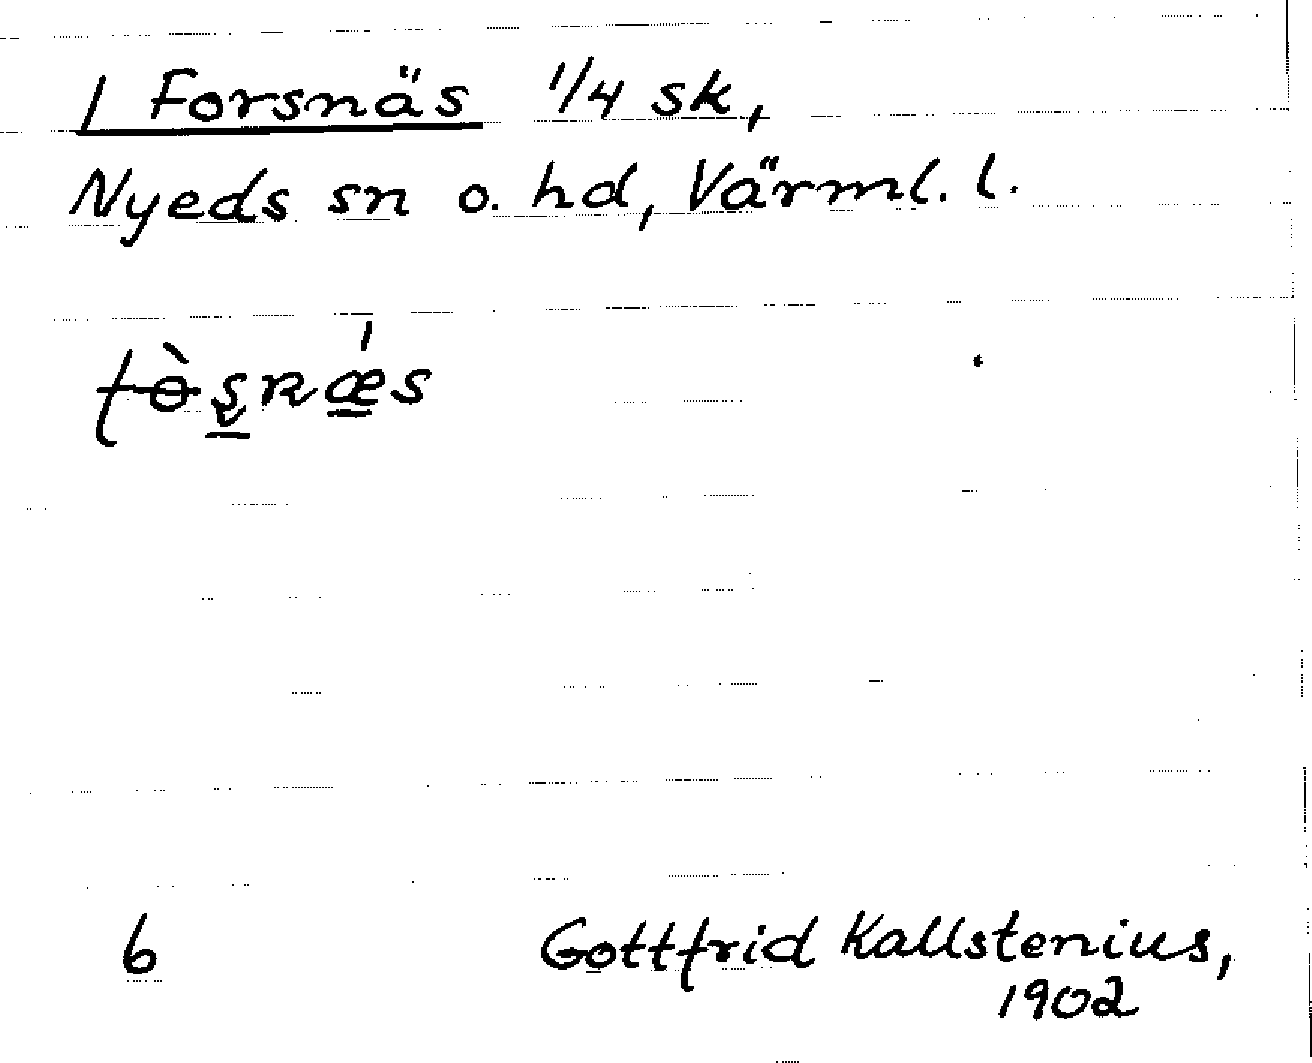 1 Forsnäs 1/4 sk,
Nyeds sn o. hd, Värml. l.
fɵ̀ʂnǽs
6 Gottfrid Kallstenius,
1902